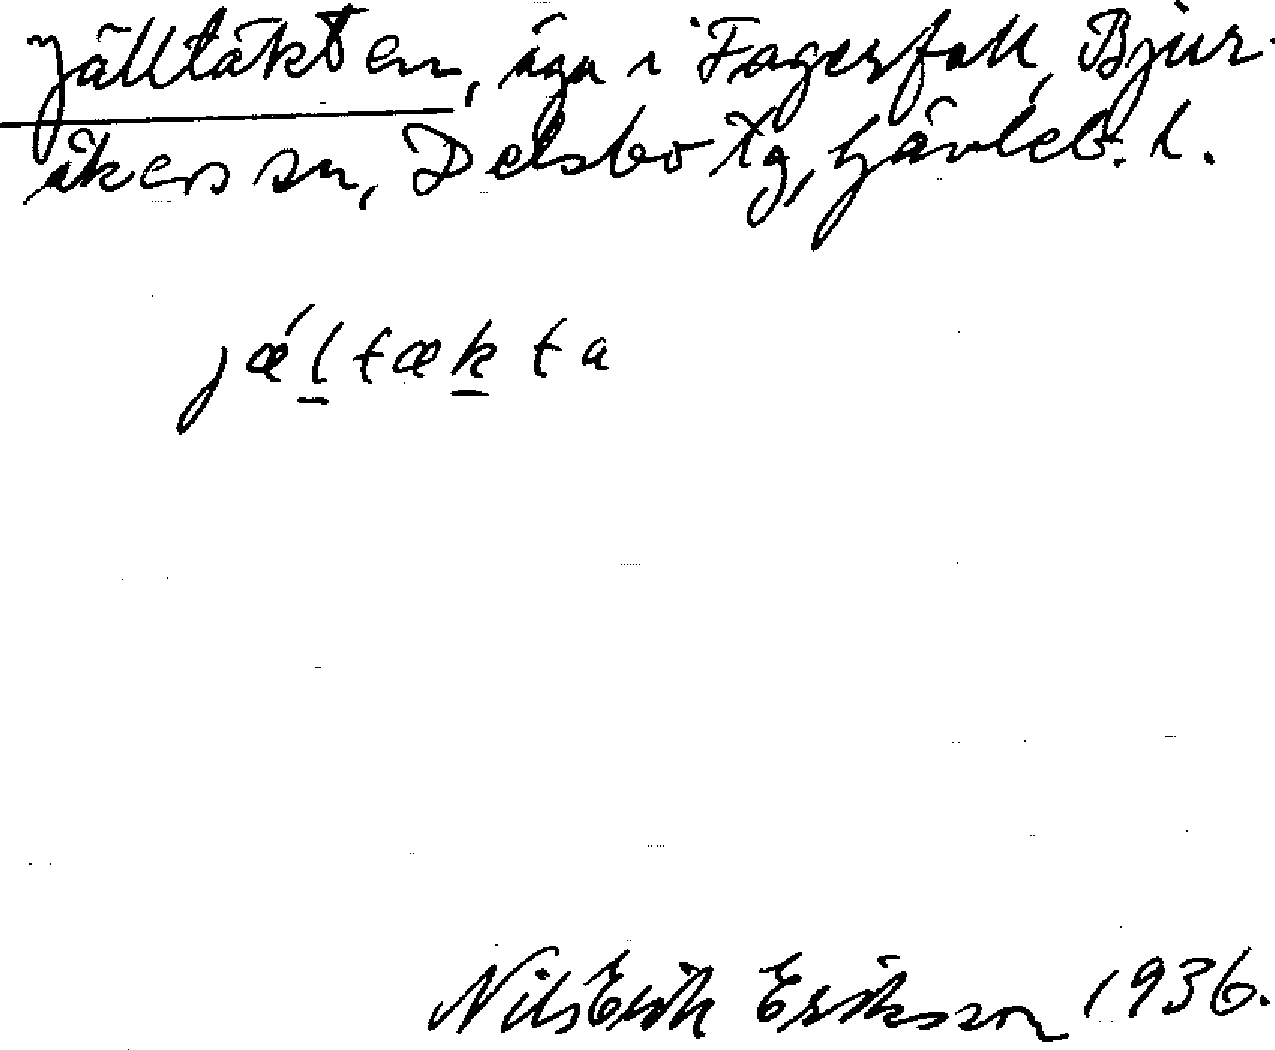 Jälltäkten, äga i Fagerfall, Bjur-
åkers sn, Delsbo tg, Gävleb. l.
jǽltækta
Nils Erik Eriksson 1936.